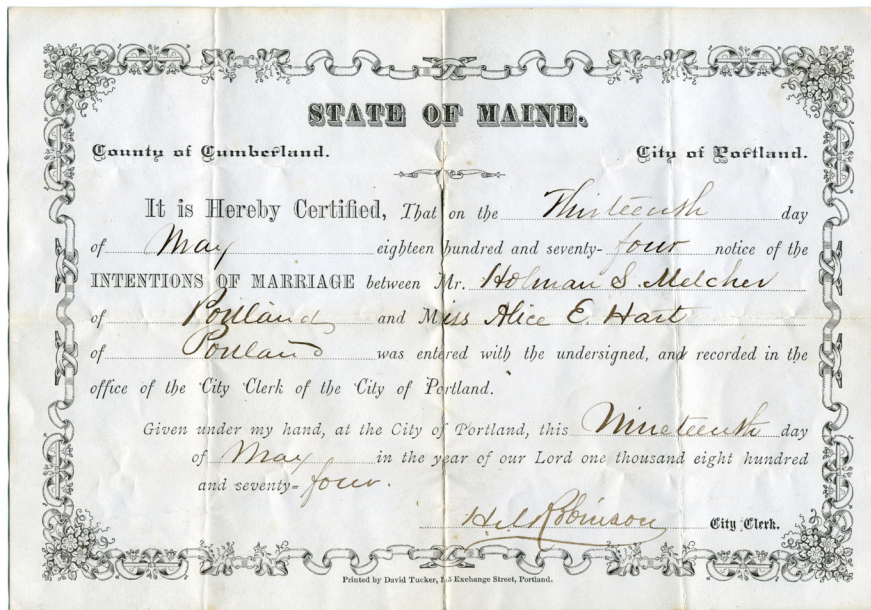 STATE OF MAINE.
County of Cumberland. City of Portland.
It is Hereby Certified, That on the Thirteenth day
of May eighteen hundred and seventy- four notice of the
INTENTIONS OF MARRIAGE between Mr. Holman S. Melcher
of Portland and Miss Alice E. Hart
of Portland was entered with the undersigned, and recorded in the
office of the City Clerk of the City of Portland.
Given under my hand, at the City of Portland, this Nineteenth day
of May in the year of our Lord one thousand eight hundred
and seventy- four.
Robinson City Clerk.
Printed by David Tucker, Exchange Street, Portland.